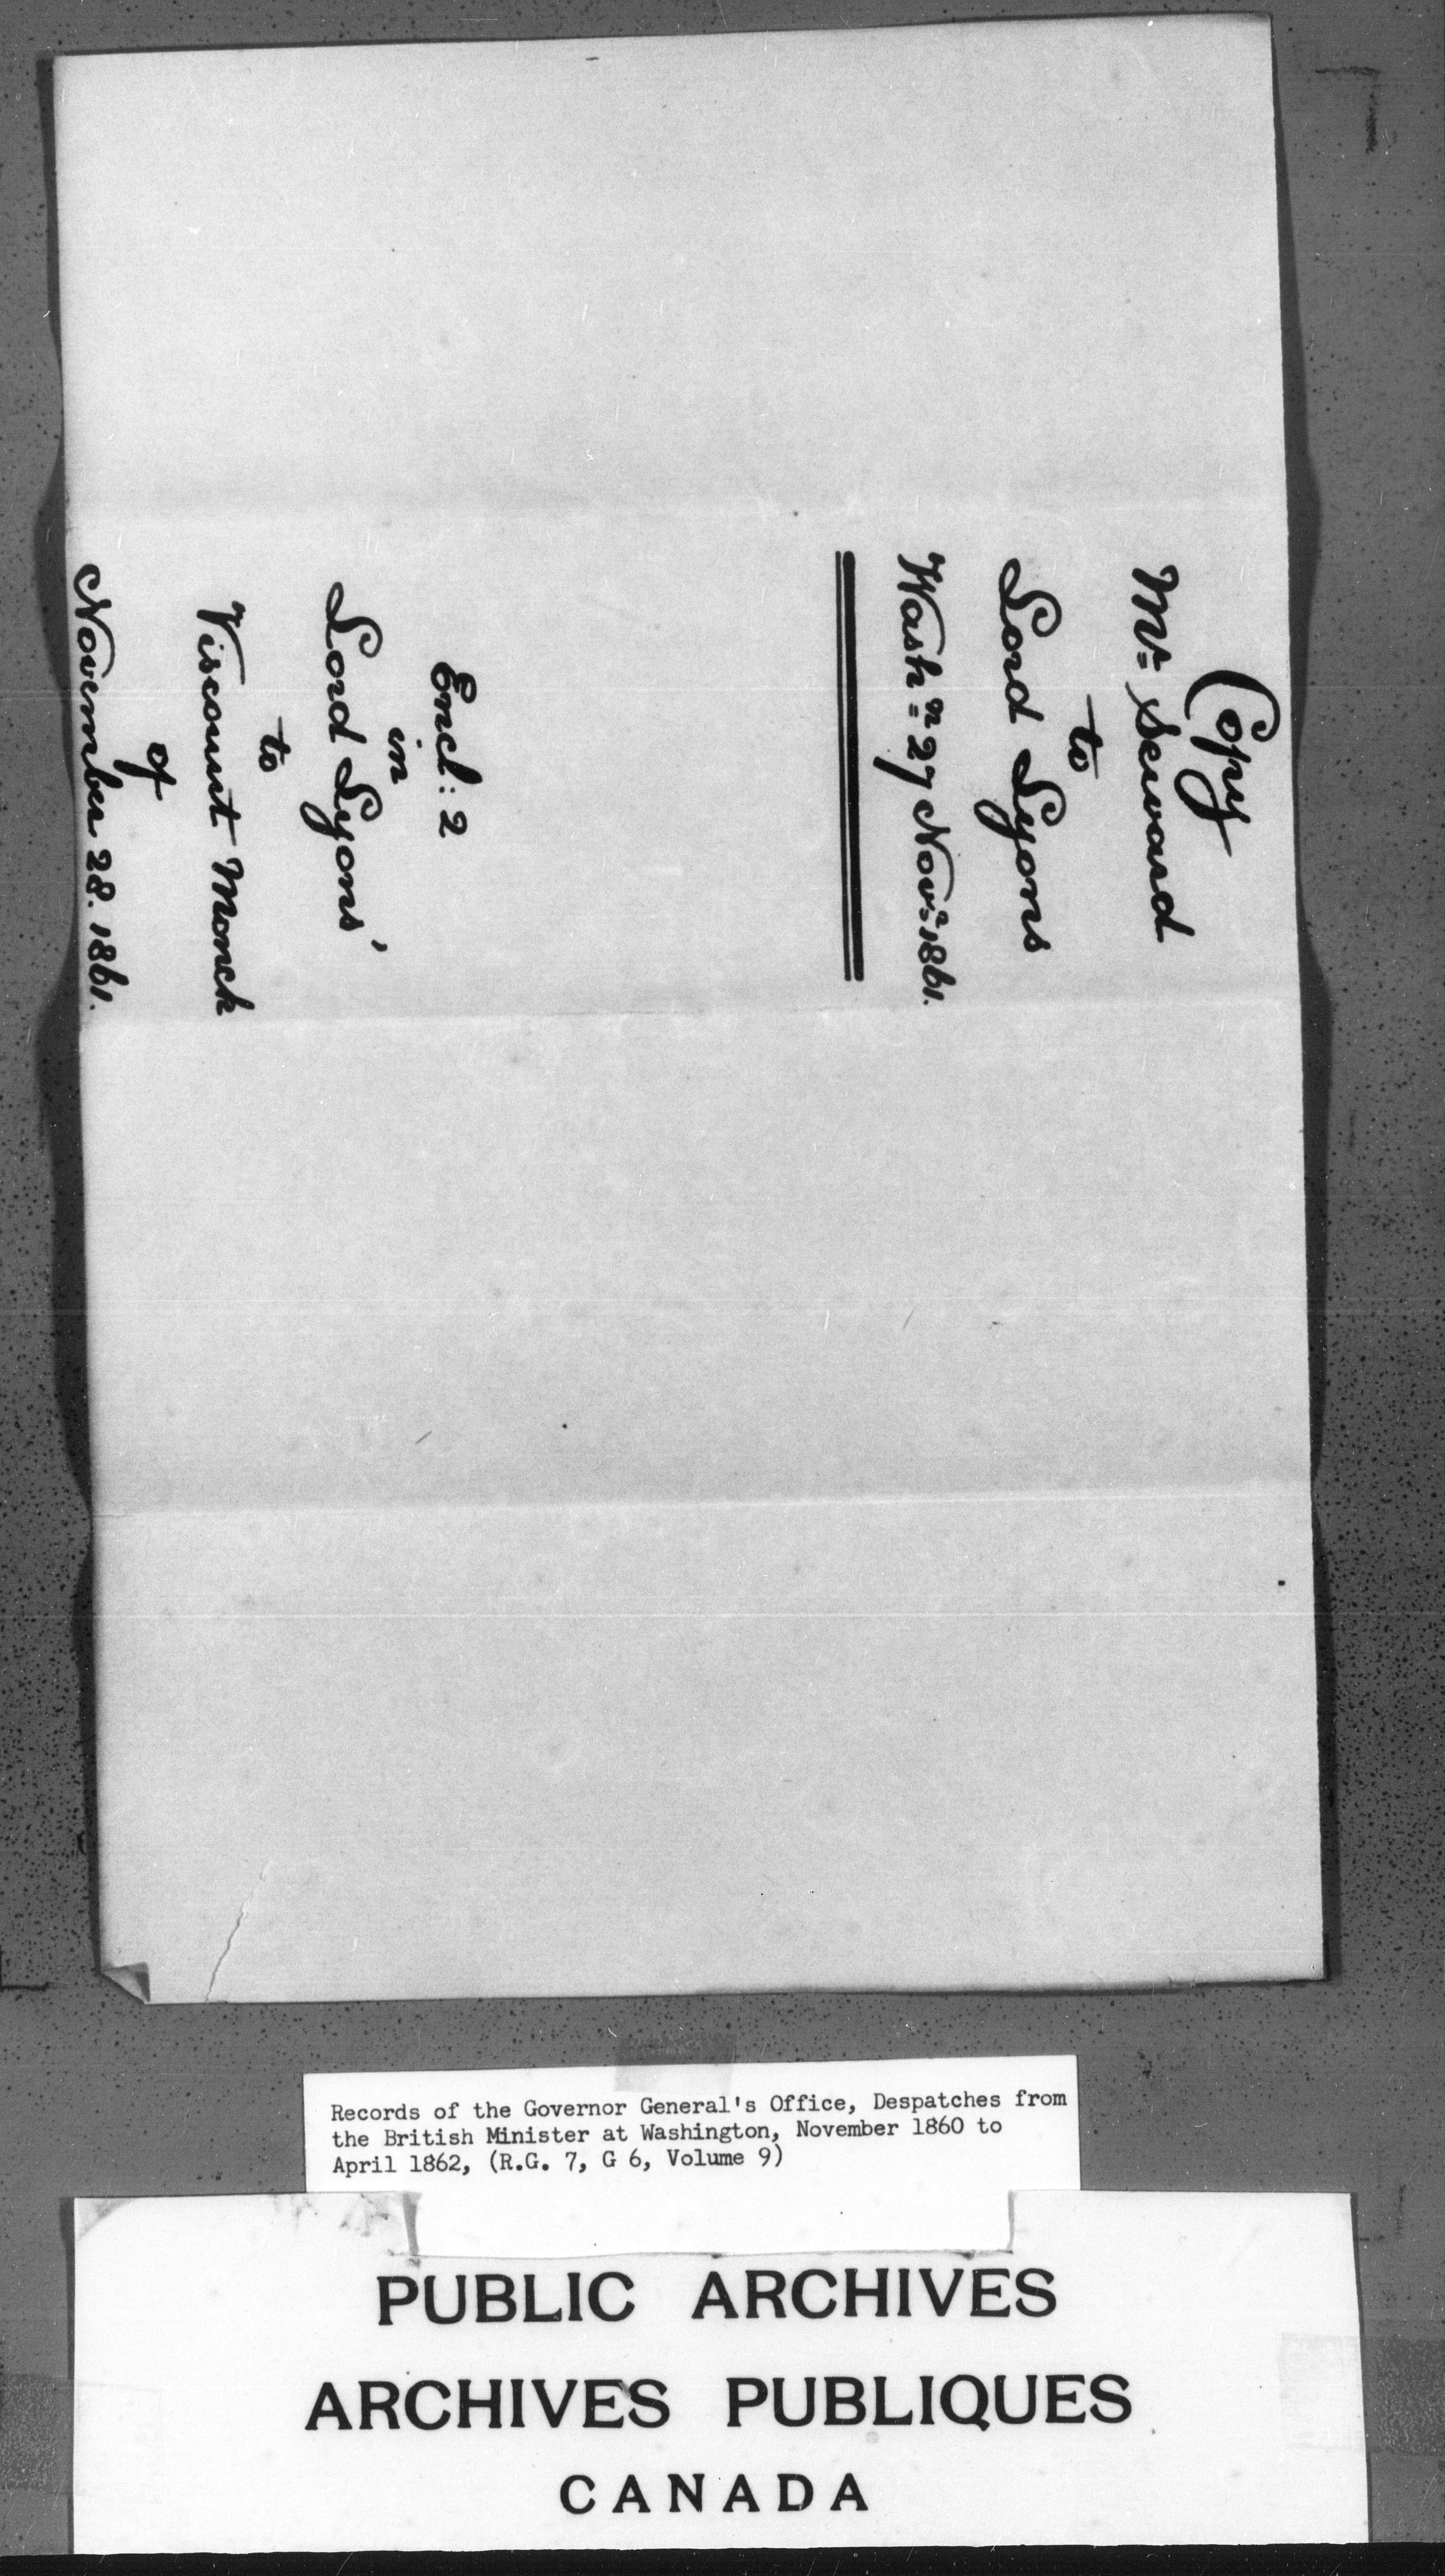 Copy
Mr. Seward
to
Lord Lyons
Washn. 27 Novr. 1861.
Encl: 2
in
Lord Lyons'
to
Viscount Monck
of
November 28. 1861.
Records of the Governor General's Office, Despatches from
the British Minister at Washington, November 1860 to
April 1862, (R.G. 7, G 6, Volume 9)
PUBLIC ARCHIVES
ARCHIVES PUBLIQUES
CANADA